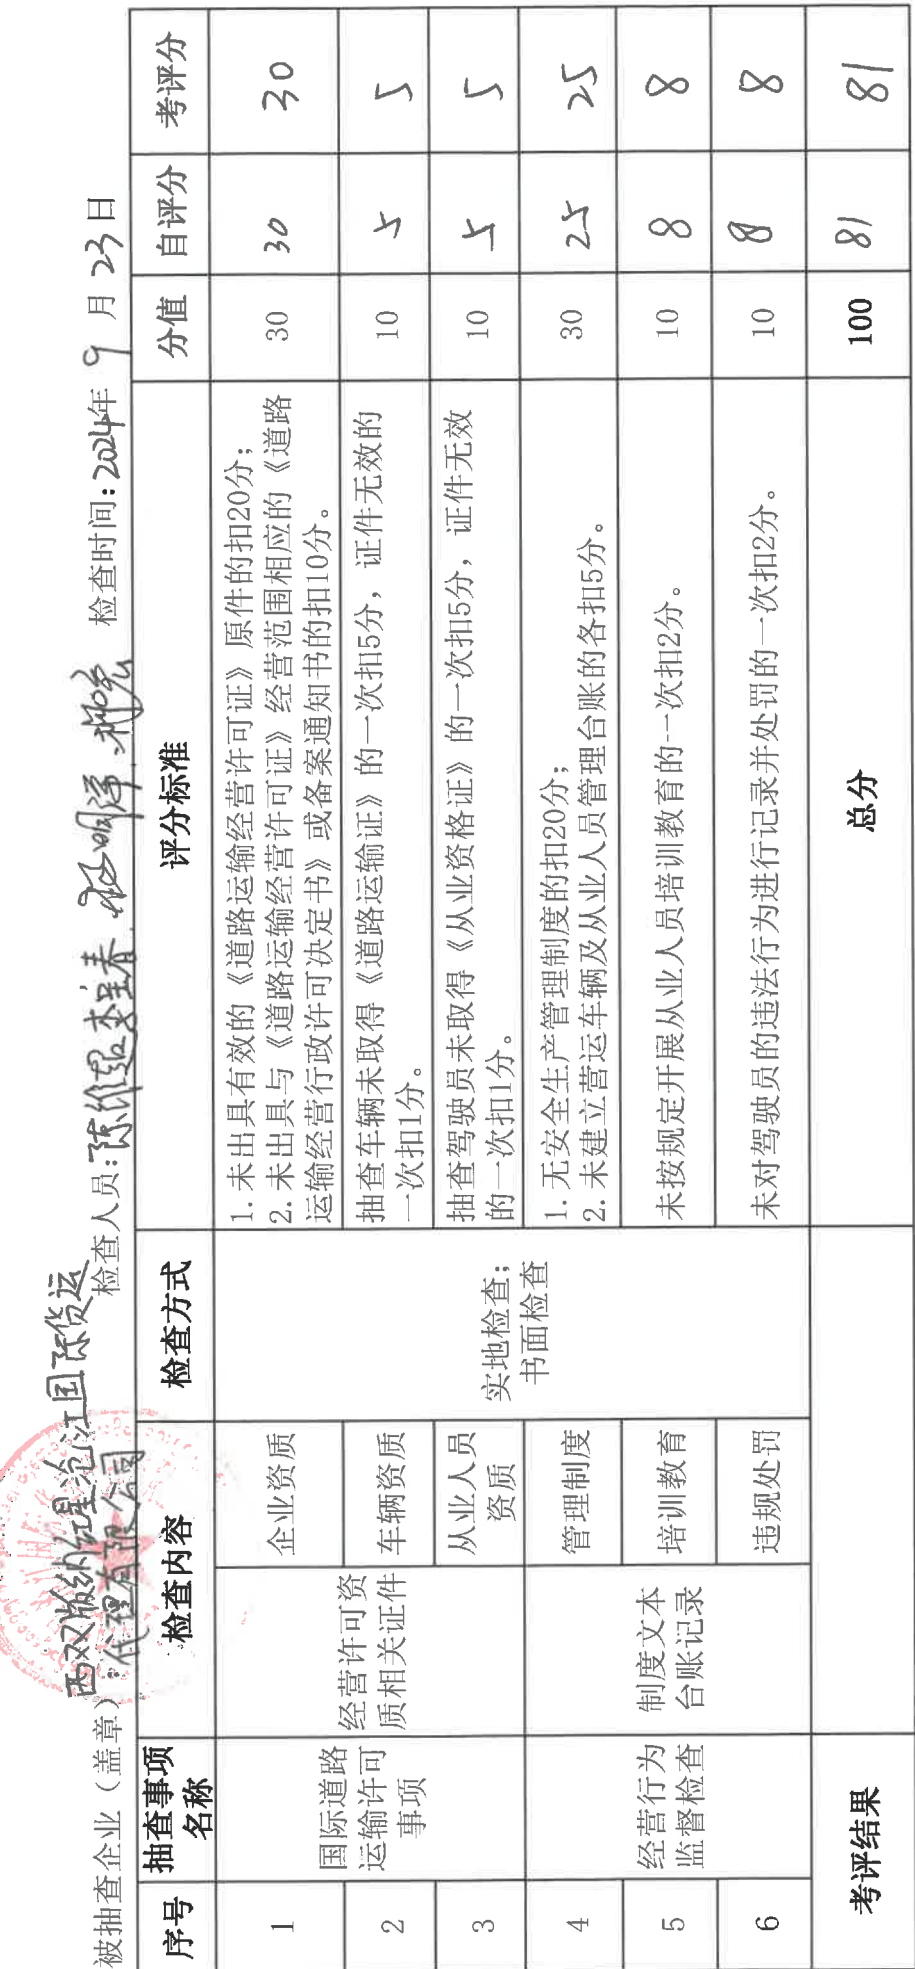 被抽查企业（盖章）：西双版纳红星沧江国际货运
代理有限公司
检查人员：陈维超 李呈春
检查时间：2024年9月23日
序号 抽查事项名称 检查内容 检查方式 评分标准 分值 自评分 考评分
1 国际道路运输许可事项 经营许可资质相关证件 企业资质 实地检查；书面检查
1. 未出具有效的《道路运输经营许可证》原件的扣20分；
2. 未出具与《道路运输经营许可证》经营范围相应的《道路
运输经营行政许可决定书》或备案通知书的扣10分。
30 30 30
2 车辆资质
抽查车辆未取得《道路运输证》的一次扣5分，证件无效的
一次扣1分。
10 5 5
3 从业人员资质
抽查驾驶员未取得《从业资格证》的一次扣5分，证件无效
的一次扣1分。
10 5 5
4 经营行为监督检查 制度文本台账记录 管理制度
1. 无安全生产管理制度的扣20分；
2. 未建立营运车辆及从业人员管理台账的各扣5分。
30 25 25
5 培训教育 未按规定开展从业人员培训教育的一次扣2分。 10 8 8
6 违规处罚 未对驾驶员的违法行为进行记录并处罚的一次扣2分。 10 8 8
考评结果 总分 100 81 81